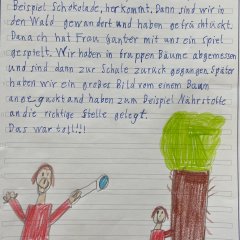 Beispiel Schokolade, herkommt. Dann sind wir in
den Wald gewandert und haben gefrühstückt.
Danach hat Frau Ganter mit uns ein Spiel
gespielt. Wir haben in Gruppen Bäume abgemessen
und sind dann zur Schule zurück gegangen Später
haben wir ein großes Bild vom einem Baum
angeguckt und haben zum Beispiel Nährstoffe
an die richtige Stelle gelegt.
Das war toll!!!